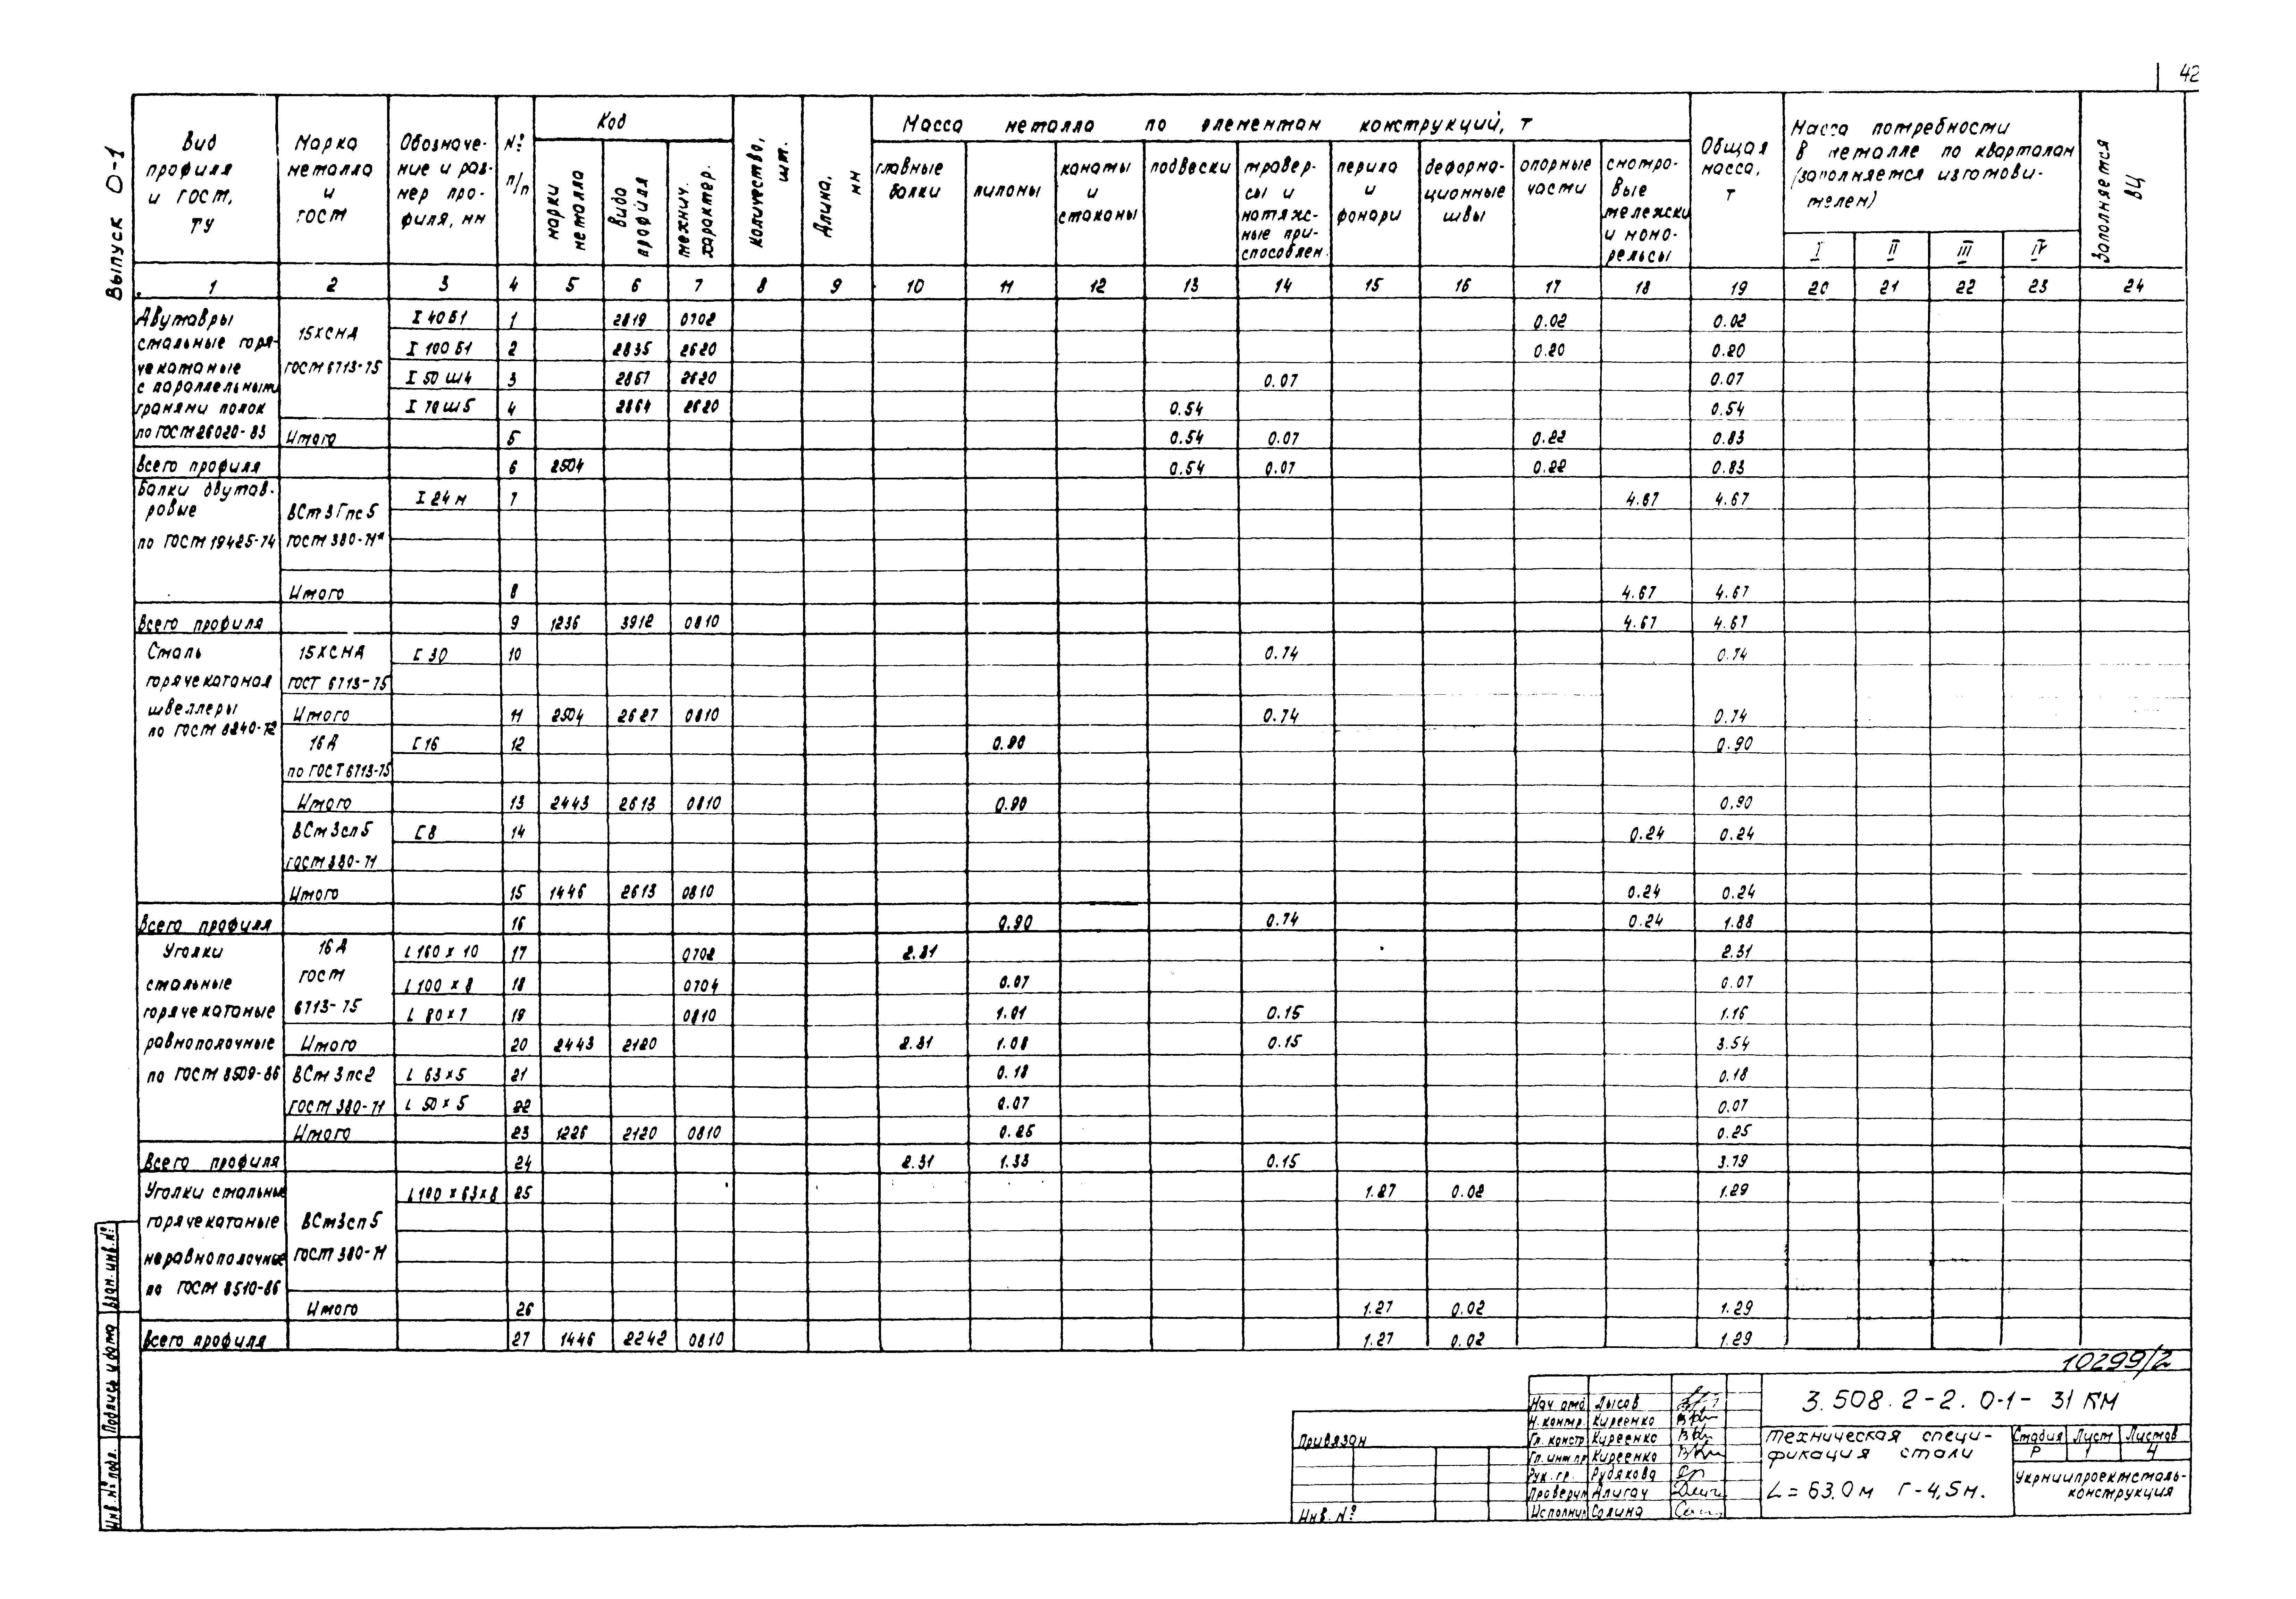 42
Выпуск 0-1
Вид профиля и ГОСТ, ТУ
Марка металла и ГОСТ
Обозначение и размер профиля, мм
№ п/п
Код
марки металла
вида профиля
механич. характер.
Количество, шт.
Длина, мм
Масса металла по элементам конструкций, т
главные балки
пилоны
канаты и стаканы
подвески
траверсы и натяжные приспособлен.
перила и фонари
деформационные швы
опорные части
смотровые тележки и монорельсы
Общая масса, т
Масса потребности в металле по кварталам (заполняется изготовителем)
I II III IV
Заполняется ВЦ
1 2 3 4 5 6 7 8 9 10 11 12 13 14 15 16 17 18 19 20 21 22 23 24
Двутавры стальные горячекатаные с параллельными гранями полок по ГОСТ 26020-83
15ХСНД ГОСТ 6713-75
I 40Б1 1 2819 0702 0.02 0.02
I 100Б1 2 2835 2620 0.20 0.20
I 50Ш4 3 2857 2620 0.07 0.07
I 70Ш5 4 2864 2620 0.54 0.54
Итого 5 0.54 0.07 0.22 0.83
Всего профиля 6 2504 0.54 0.07 0.22 0.83
Балки двутавровые по ГОСТ 19425-74
ВСт3Гпс5 ГОСТ 380-71*
I 24м 7 4.67 4.67
Итого 8 4.67 4.67
Всего профиля 9 1236 3912 0810 4.67 4.67
Сталь горячекатаная швеллеры по ГОСТ 8240-72
15ХСНД ГОСТ 6713-75
[ 30 10 0.74 0.74
Итого 11 2504 2627 0810 0.74 0.74
16Д по ГОСТ 6713-75
[ 16 12 0.90 0.90
Итого 13 2443 2613 0810 0.90 0.90
ВСт3сп5 ГОСТ 380-71
[ 8 14 0.24 0.24
Итого 15 1446 2613 0810 0.24 0.24
Всего профиля 16 0.90 0.74 0.24 1.88
Уголки стальные горячекатаные равнополочные по ГОСТ 8509-86
16Д ГОСТ 6713-75
L 160 x 10 17 0702 2.31 2.31
L 100 x 8 18 0704 0.07 0.07
L 80 x 7 19 0810 1.01 0.15 1.16
Итого 20 2443 2120 2.31 1.08 0.15 3.54
ВСт3пс2 ГОСТ 380-71
L 63 x 5 21 0.18 0.18
L 50 x 5 22 0.07 0.07
Итого 23 1226 2120 0810 0.25 0.25
Всего профиля 24 2.31 1.33 0.15 3.79
Уголки стальные горячекатаные неравнополочные по ГОСТ 8510-86
ВСт3сп5 ГОСТ 380-71
L 100 x 63 x 8 25 1.27 0.02 1.29
Итого 26 1.27 0.02 1.29
Всего профиля 27 1446 2242 0810 1.27 0.02 1.29
10299/2
Взам. инв. №
Подпись и дата
Инв. № подл.
Привязан
Инв. №
Нач. отд. Лысов
Н. контр. Киреенко
Гл. констр. Киреенко
Гл. инж. пр. Киреенко
Рук. гр. Рудякова
Проверил Алигач
Исполнил Солина
3.508.2-2.0-1-31КМ
Техническая спецификация стали
L = 63.0м Г-4,5м.
Стадия Лист Листов
Р 1 4
Укрниипроектстальконструкция